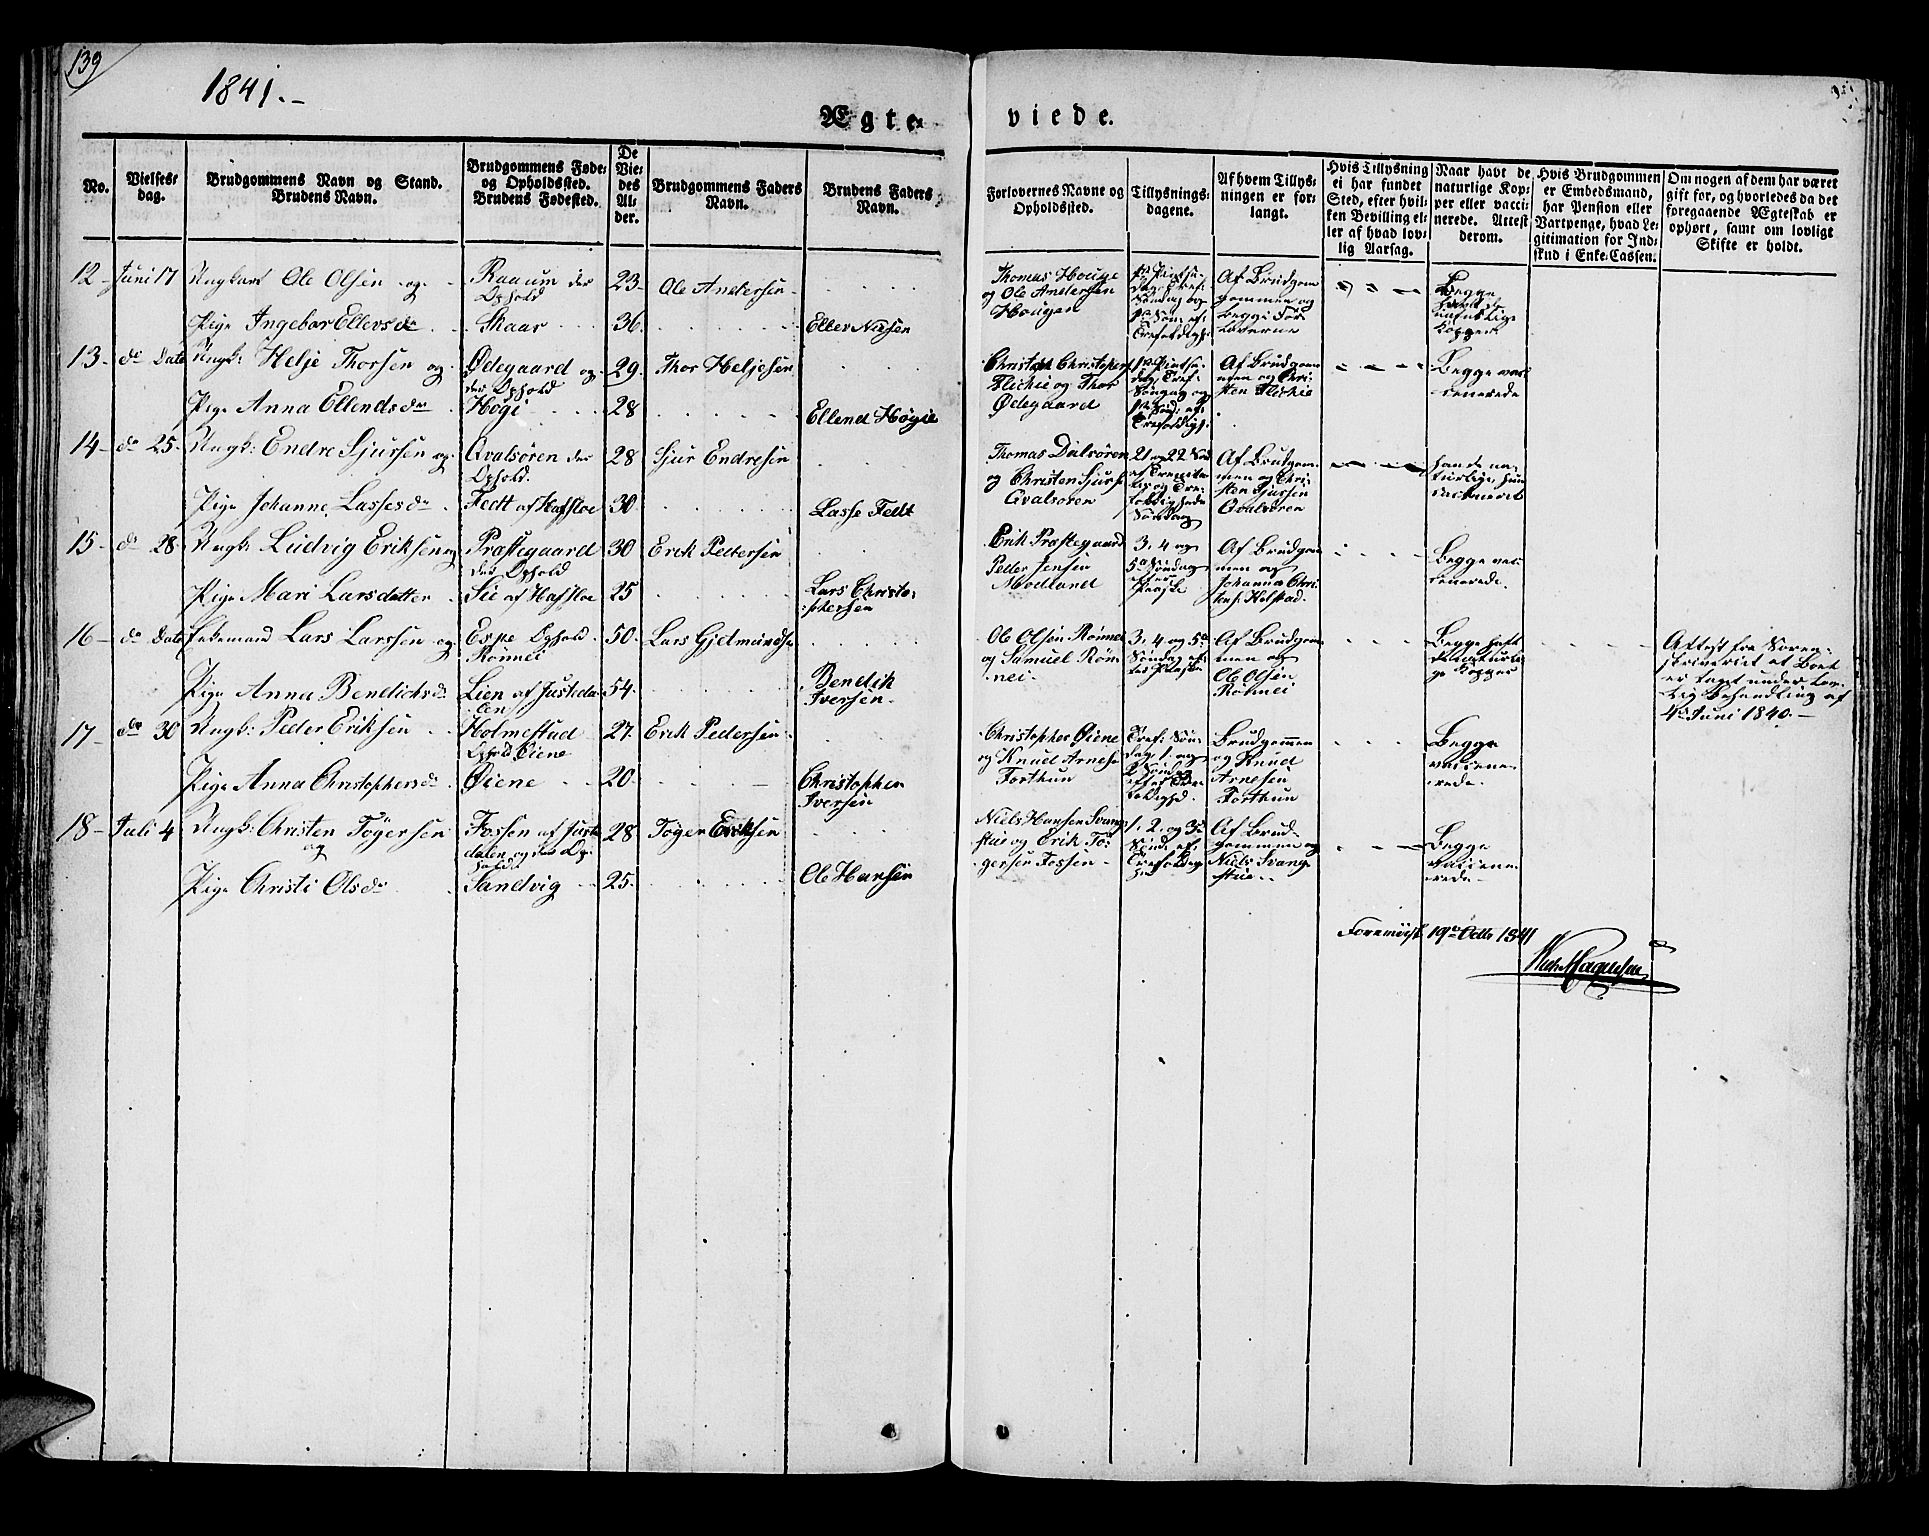 139
1841.-
Ægte-
viede.
No.
Vielses-
dag.
Brudgommens Navn og Stand.
Brudens Navn.
Brudgommens Føde-
og Opholdssted.
Brudens Fødested.
De
Vie-
des
Al-
der.
Brudgommens Faders
Navn.
Brudens Faders
Navn.
Forlovernes Navne og
Opholdssted.
Tillysnings-
dagene.
Af hvem Tillys-
ningen er for-
langt.
Hvis Tillysning
ei har fundet
Sted, efter hvil-
ken Bevilling el-
ler af hvad lov-
lig Aarsag.
Naar havt de
naturlige Kop-
per eller vacci-
nerede. Attest
derom.
Hvis Brudgommen
er Embedsmand,
har Pension eller
Vartpenge, hvad Le-
gitimation for Ind-
skud i Enke-Cassen.
Om nogen af dem har været
gift før, og hvorledes da det
foregaaende Ægteskab er
ophørt, samt om lovligt
Skifte er holdt.
12- Juni 17 Ungkarl Ole Olsen og
Raaum der
Ophold
23- Ole Andersen
Thomas Houge
og Ole Andersen
Hougen
Af Brudgom
gommen og
begge For
loverne
Begge
Pige Ingebor Ellersdr Skaar 36. Eller Nilsen
naturlige
Kopper
13- do Dato Ungk: Helje Thorsen og
Ødegaard og
der Ophold
29. Thor Heljesen
Christoph Christophers
Flichie og Thor
Ødegaard
1ste Pintse-
dag, Tref:
Søndag og
1ste Sønd: ef:
Trefoldigh.
Af Brudgom
men og Chri-
sten Flichie
Begge vac
cenerede
Pige Anna Ellendsdr Høgi 28 Ellend Høgie
14- do 25. Ungk: Endre Sjursen og
Qvalsøren der
Ophold.
28 Sjur Endresen
Thomas Dalsøren
og Christen Sjurs
Qvalsøren
21 og 22 Søn
Søndag
Af Brudgom-
men og Chri-
sten Sjursen
Qvalsøren
han de na-
turlige, hun
vaccineret
Pige Johanne Lassesdr Fedt af Hafsloe 30 Lasse Fedt
15- do 28. Ungk: Ludvig Eriksen og
Præstegaard
der Ophold
30 Erik Pedersen
Erik Præstegaard
Peder Jensen
Modland
3, 4 og
5te Søndag
efter
Paaske
Af Brudgom
men og
Johannes Chri
stens: Holstad.
Begge vac
cenerede.
Pige Mari Larsdatter Sie af Hafsloe 25 Lars Christo-
phersen
16- do Dato Enkemand Lars Larssen og
Espe Ophold
Rønnei
50. Lars Gjelmundse
Ole Olsen Rønnei
og Samuel Røn-
nei
3, 4 og 5te
Søndag ef-
ter Paaske
Af Brudgom
men og
Ole Olsen
Rønnei
Begge haft
de naturli-
ge Kopper
Attest fra Soren-
skriveriet at Boet
er taget under lov-
lig Behandling af
4de Juni 1840.-
Pige Anna Bendichsdr Lien af Justeda-
len
54. Bendik
Iversen
17- do 30 Ungk: Peder Eriksen
Holmestad
Ophold Øiene
27. Erik Pedersen
Christopher Øiene
og Knud Arnesen
Forthun
Tref: Søn-
dag, 1. og
2 Sønd:
efter Tre-
foldighd.
Brudgommen
og Knud
Arnesen
Forthun
Begge
vaccene-
rede.
Pige Anna Christophersdr Øiene 20. Christopher
Iversen
18- Juli 4 Ungk: Christen Tøgersen
og
Fossen af Juste
dalen og der Op-
hold
28 Tøger Eriksen
Niels Hansen Svang-
stue og Erik Tø-
gersen Fossen
1, 2, og 3de
Sønd. ef.
Trefoldig
hd.
Af Brud-
gommen og
Niels Svang-
stue..
Begge
vaccene-
rede.
Pige Christi Olsdr Sandvig 25. Ole Hansen
Foreviist 19de Octb 1841